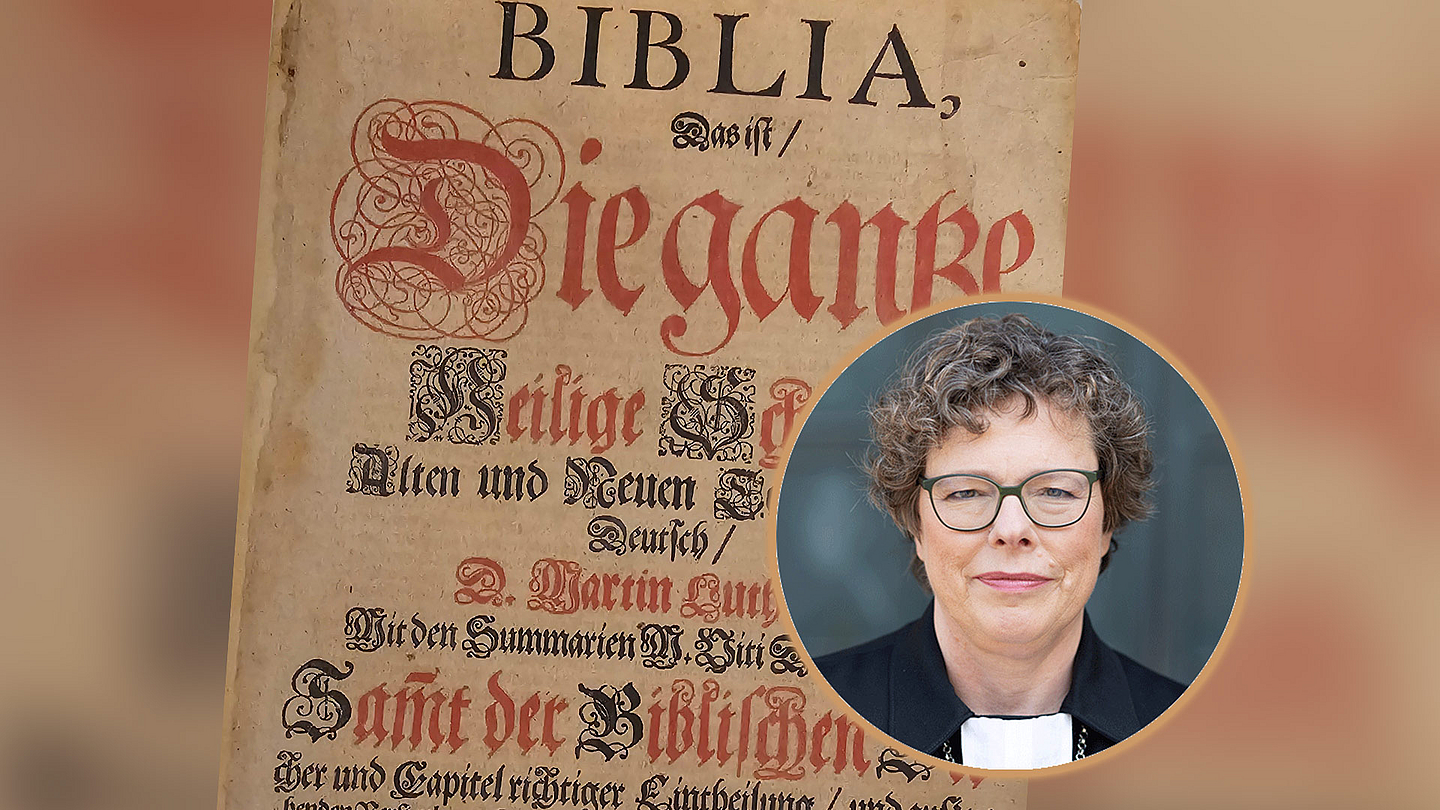 BIBLIA,
Das iſt /
Die gantze
Heilige
Alten und Neuen
Deutſch /
D. Martin
Mit den Summarien M. Viti
Sam̄t der Bibliſchen
cher und Capitel richtiger Eintheilung / und